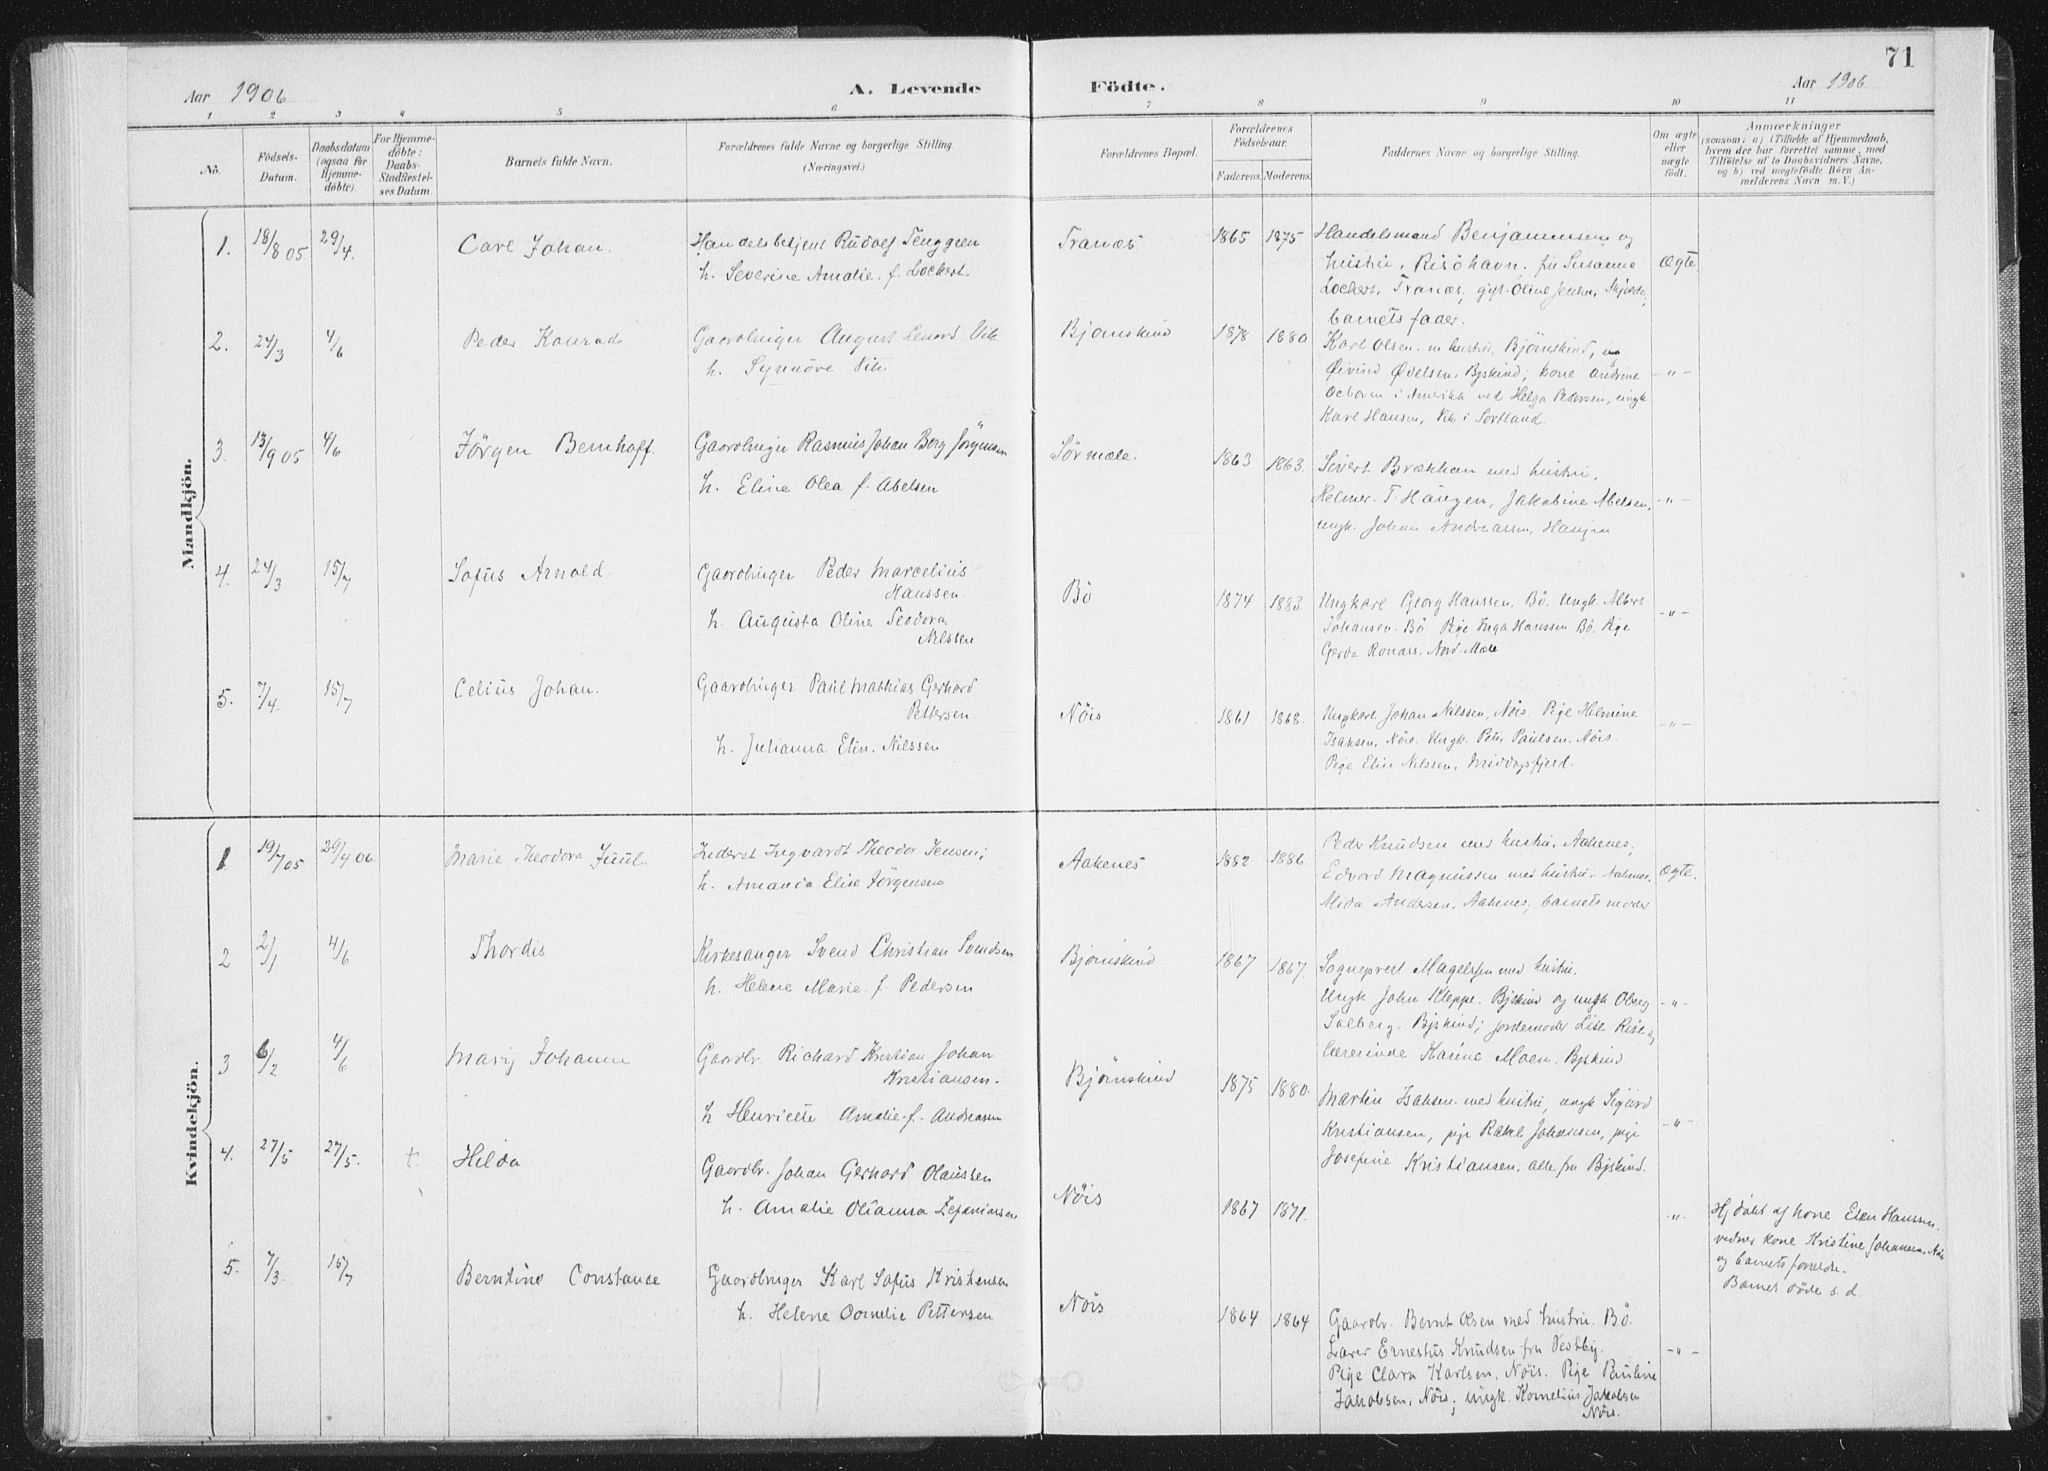 71
Aar 1906
A. Levende
Födte.
Aar 1906
1 2 3 4 5 6 7 8 9 10 11
No.
Födsels-
Datum.
Daabsdatum
(ogsaa for
Hjemme-
döbte).
For Hjemme-
döbte:
Daabs-
Stadfæstel-
ses Datum.
Barnets fulde Navn.
Forældrenes fulde Navne og borgerlige Stilling.
(Næringsvei.)
Forældrenes Bopæl.
Forældrenes
Födselsaar.
Faderens. Moderens.
Faddernes Navne og borgerlige Stilling.
Om ægte
eller
uægte
födt.
Anmærkninger
(saasom: a) i Tilfælde af Hjemmedaab,
hvem der har forrettet samme, med
Tilföielse af to Daabsvidners Navne.
og b) ved uægtefödte Börn An-
melderens Navn m. V.)
Mandkjön.
1. 18/8 05 29/4. Carl Johan.
Handelsbetjent Rudolf Tenggren
h. Severine Amalie f. Lockert.
Tranæs 1865 1875
Handelsmand Benjaminsen og
hustru, Risöhavn. frk Susanna
Lockert, Tranæs, gift Oline Jensen,
barnets fader.
Ægte
2. 24/3 4/6 Peder Konrad
Gaardbruger August Lenord Vik
h. Synnöve Vik
Bjørnskind 1878 1880
Karl Olsen m hustru, Bjørnskind, ug
Øivind Ødelsen, Bjskind; kone Andrine
i Amerika ved Helga Pedersen, ungk
Karl Hansen, Vik i Sortland.
-"-
3. 13/9 05 4/6 Jörgen Bernhoff.
Gaardbruger Rasmus Johan Berg Jörgensen
h. Eline Olea f. Abelsen
Sör mæle. 1863 1863.
Sivert Brækkan med hustru,
Helmer T. Haugen, Jakobine Abelsen,
ungk. Johan Andreassen, Haugen
-"-
4. 24/3 15/7 Sofus Arnold.
Gaardbruger Peder Marcelius
Hanssen.
h. Augusta Oline Teodora
Nilssen
Bö 1874 1883.
Ungkarl Georg Hanssen, Bö. Ungk. Albert
Johansen. Bö Pige Inga Hanssen. Bö. Pige
Gerda Ronæs. Nord-Mæle
-"-
5. 7/4. 15/7 Celius Johan.
Gaardbruger Paul Mathias Gerhard
Pettersen
h. Julianna Elin. Nilssen
Nöis 1861 1868.
Ungkarl Johan Nilssen, Nöis. Pige Helmine
Isaksen, Nöis. Ungk. Peter Paulsen. Nöis.
Pige Elin Nilssen, Middagsfjord.
-"-
Kvindekjön.
1 19/7 05 29/4 06 Marie Theodora Juul.
Inderst Ingvardt Theodor Jensen;
h. Amanda Elise Jörgensen
Aakenes 1882 1886.
Peder Knudsen med hustru. Aakenes,
Edvard Magnussen med hustru. Aakenes.
Alida Andersen, Aakenes, barnets moder
Ægte.
2 2/1 4/6 Thordis
Kirkesanger Svend Christian Svendsen
h. Helene Marie f. Pedersen
Bjørnskind 1867 1867.
Sogneprest Magelssen med hustru.
Ungk John Kleppe. Bjskind og ungk Oberg
Solberg, Bjskind; jordemoder Lise Rise og
lærerinde Karine Moen. Bjskind
-"-
3 6/2 4/6 Mary Johanne
Gaardbr. Richard Kristian Johan
Kristiansen.
h Henriette Amalie f. Andreasen
Bjørnskind 1875 1880.
Martin Isaksen med hustru, ungk Sigurd
Kristiansen, pige Rakel Johansen, pige
Josefine Kristiansen, alle fra Bjskind.
-"-
4. 27/5 27/5. t. Hilda
Gaardbr. Johan Gerhard Olaussen
h. Amalie Olianna Zefaniassen
Nöis 1867 1871.
-"-
Hj döbt af kone Elen Hanssen.
vidner kone Kristine Johansen, Nöis
og barnets forældre.
Barnet döde s. d.
5. 7/3. 15/7 Berntine Constance
Gaardbruger Karl Sofus Kristensen
h. Helene Cornelie Pettersen
Nöis 1864 1864
Gaardbr. Bernt Olsen med hustru. Bö.
Lærer Ernestus Knudsen fra Vestby.
Pige Clara Karlsen, Nöis. Pige Pauline
Jakobsen, Nöis; Ungk. Kornelius Jakobsen
Nöis.
-"-